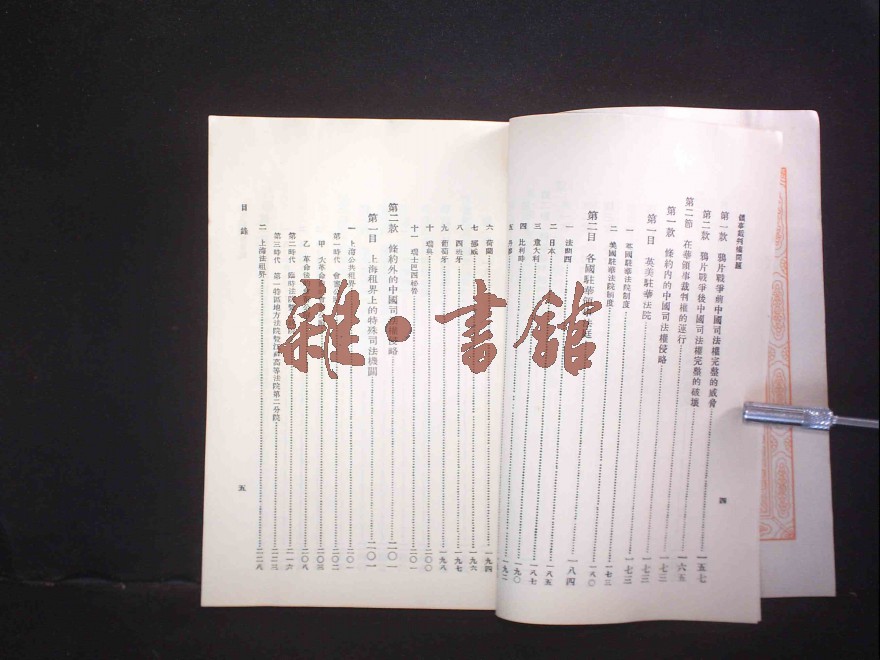 領事裁判權問題
第一款 鴉片戰爭前中國司法權完整的威脅……一五七
第二款 鴉片戰爭後中國司法權完整的破壞……一六五
第二節 在華領事裁判權的運行……一七三
第一款 條約內的中國司法權侵略……一七三
第一目 英美駐華法院……一七三
一 英國駐華法院制度……一七三
二 美國駐華法院制度
第二目 各國駐華領事法庭……一八〇
一 法蘭西……一八四
二 日本……一八五
三 意大利……一八七
四 比利時……一九〇
五 丹麥……一九二
四
六 荷蘭……一九四
七 挪威……一九六
八 西班牙……一九七
九 葡萄牙……一九八
十 瑞典……二〇〇
十一 瑞士巴西秘魯……二〇一
第二款 條約外的中國司法權侵略……二〇一
第一目 上海租界上的特殊司法機關……二〇一
一 上海公共租界……二〇一
第一時代 會審公廨……二〇二
甲 大革命前……二〇三
乙 革命後……二〇八
第二時代 臨時法院……二一六
第三時代 第一特區地方法院暨江蘇高等法院第二分院……二二三
二 上海法租界……二二八
目錄
五
雜·書館